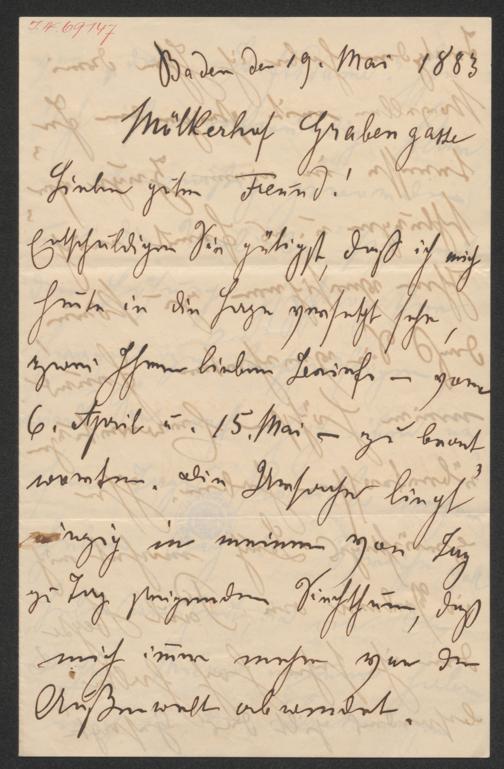 I.N. 69147
Baden den 19. Mai 1883
Mölkerhof Grabengasse
Lieber guter Freund!
Entschuldigen Sie gütigst, daß ich mich
heute in die Lage versetzt sehe,
zwei Ihrer lieben Briefe – vom
6. April u. 15. Mai – zu beant
worten. Die Ursache liegt
einzig in meinem von Tag
zu Tag steigenden Siechthum, das
mich immer mehr von der
Außenwelt abwendet.